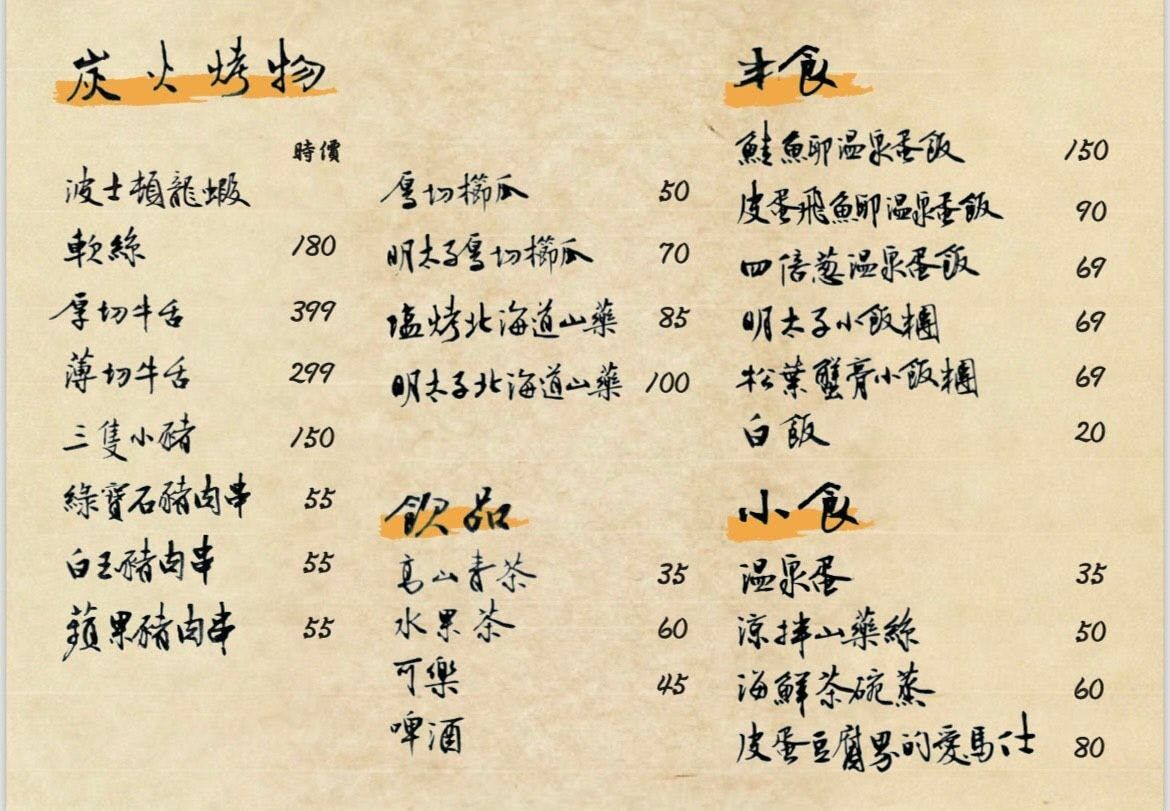 炭火烤物
時價
波士頓龍蝦
軟絲 180
厚切牛舌 399
薄切牛舌 299
三隻小豬 150
綠寶石豬肉串 55
白玉豬肉串 55
蘋果豬肉串 55
厚切櫛瓜 50
明太子厚切櫛瓜 70
塩烤北海道山藥 85
明太子北海道山藥 100
飲品
高山青茶 35
水果茶 60
可樂 45
啤酒
米食
鮭魚卵温泉蛋飯 150
皮蛋飛魚卵温泉蛋飯 90
四倍蔥温泉蛋飯 69
明太子小飯糰 69
松葉蟹膏小飯糰 69
白飯 20
小食
温泉蛋 35
涼拌山藥絲 50
海鮮茶碗蒸 60
皮蛋豆腐男的愛馬仕 80